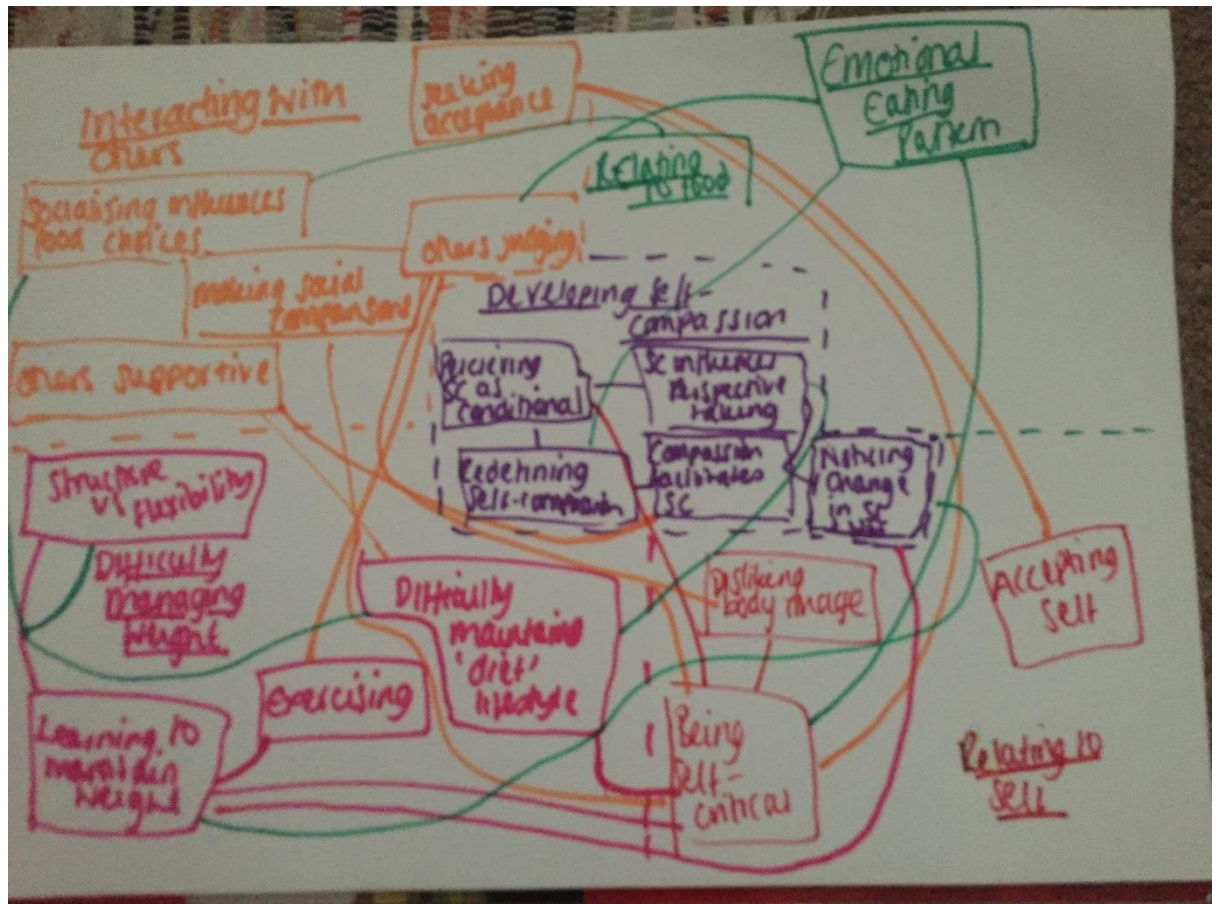 Interacting with
others
seeking
acceptance
Emotional
Eating
Pattern
Relating
to food
Socialising influences
food choices
others judging!
making social
comparisons
others supportive
Developing self-
compassion
Perceiving
SC as
conditional
SC influences
Perspective
taking
Redefining
Self-compassion
Compassion
facilitates
SC
Noticing
Change
in SC
Structure
vs flexibility
Difficulty
managing
weight
Difficulty
maintaining
'diet'
lifestyle
Disliking
body image
Accepting
Self
Exercising
Learning to
maintain
weight
Being
self-
critical
Relating to
self